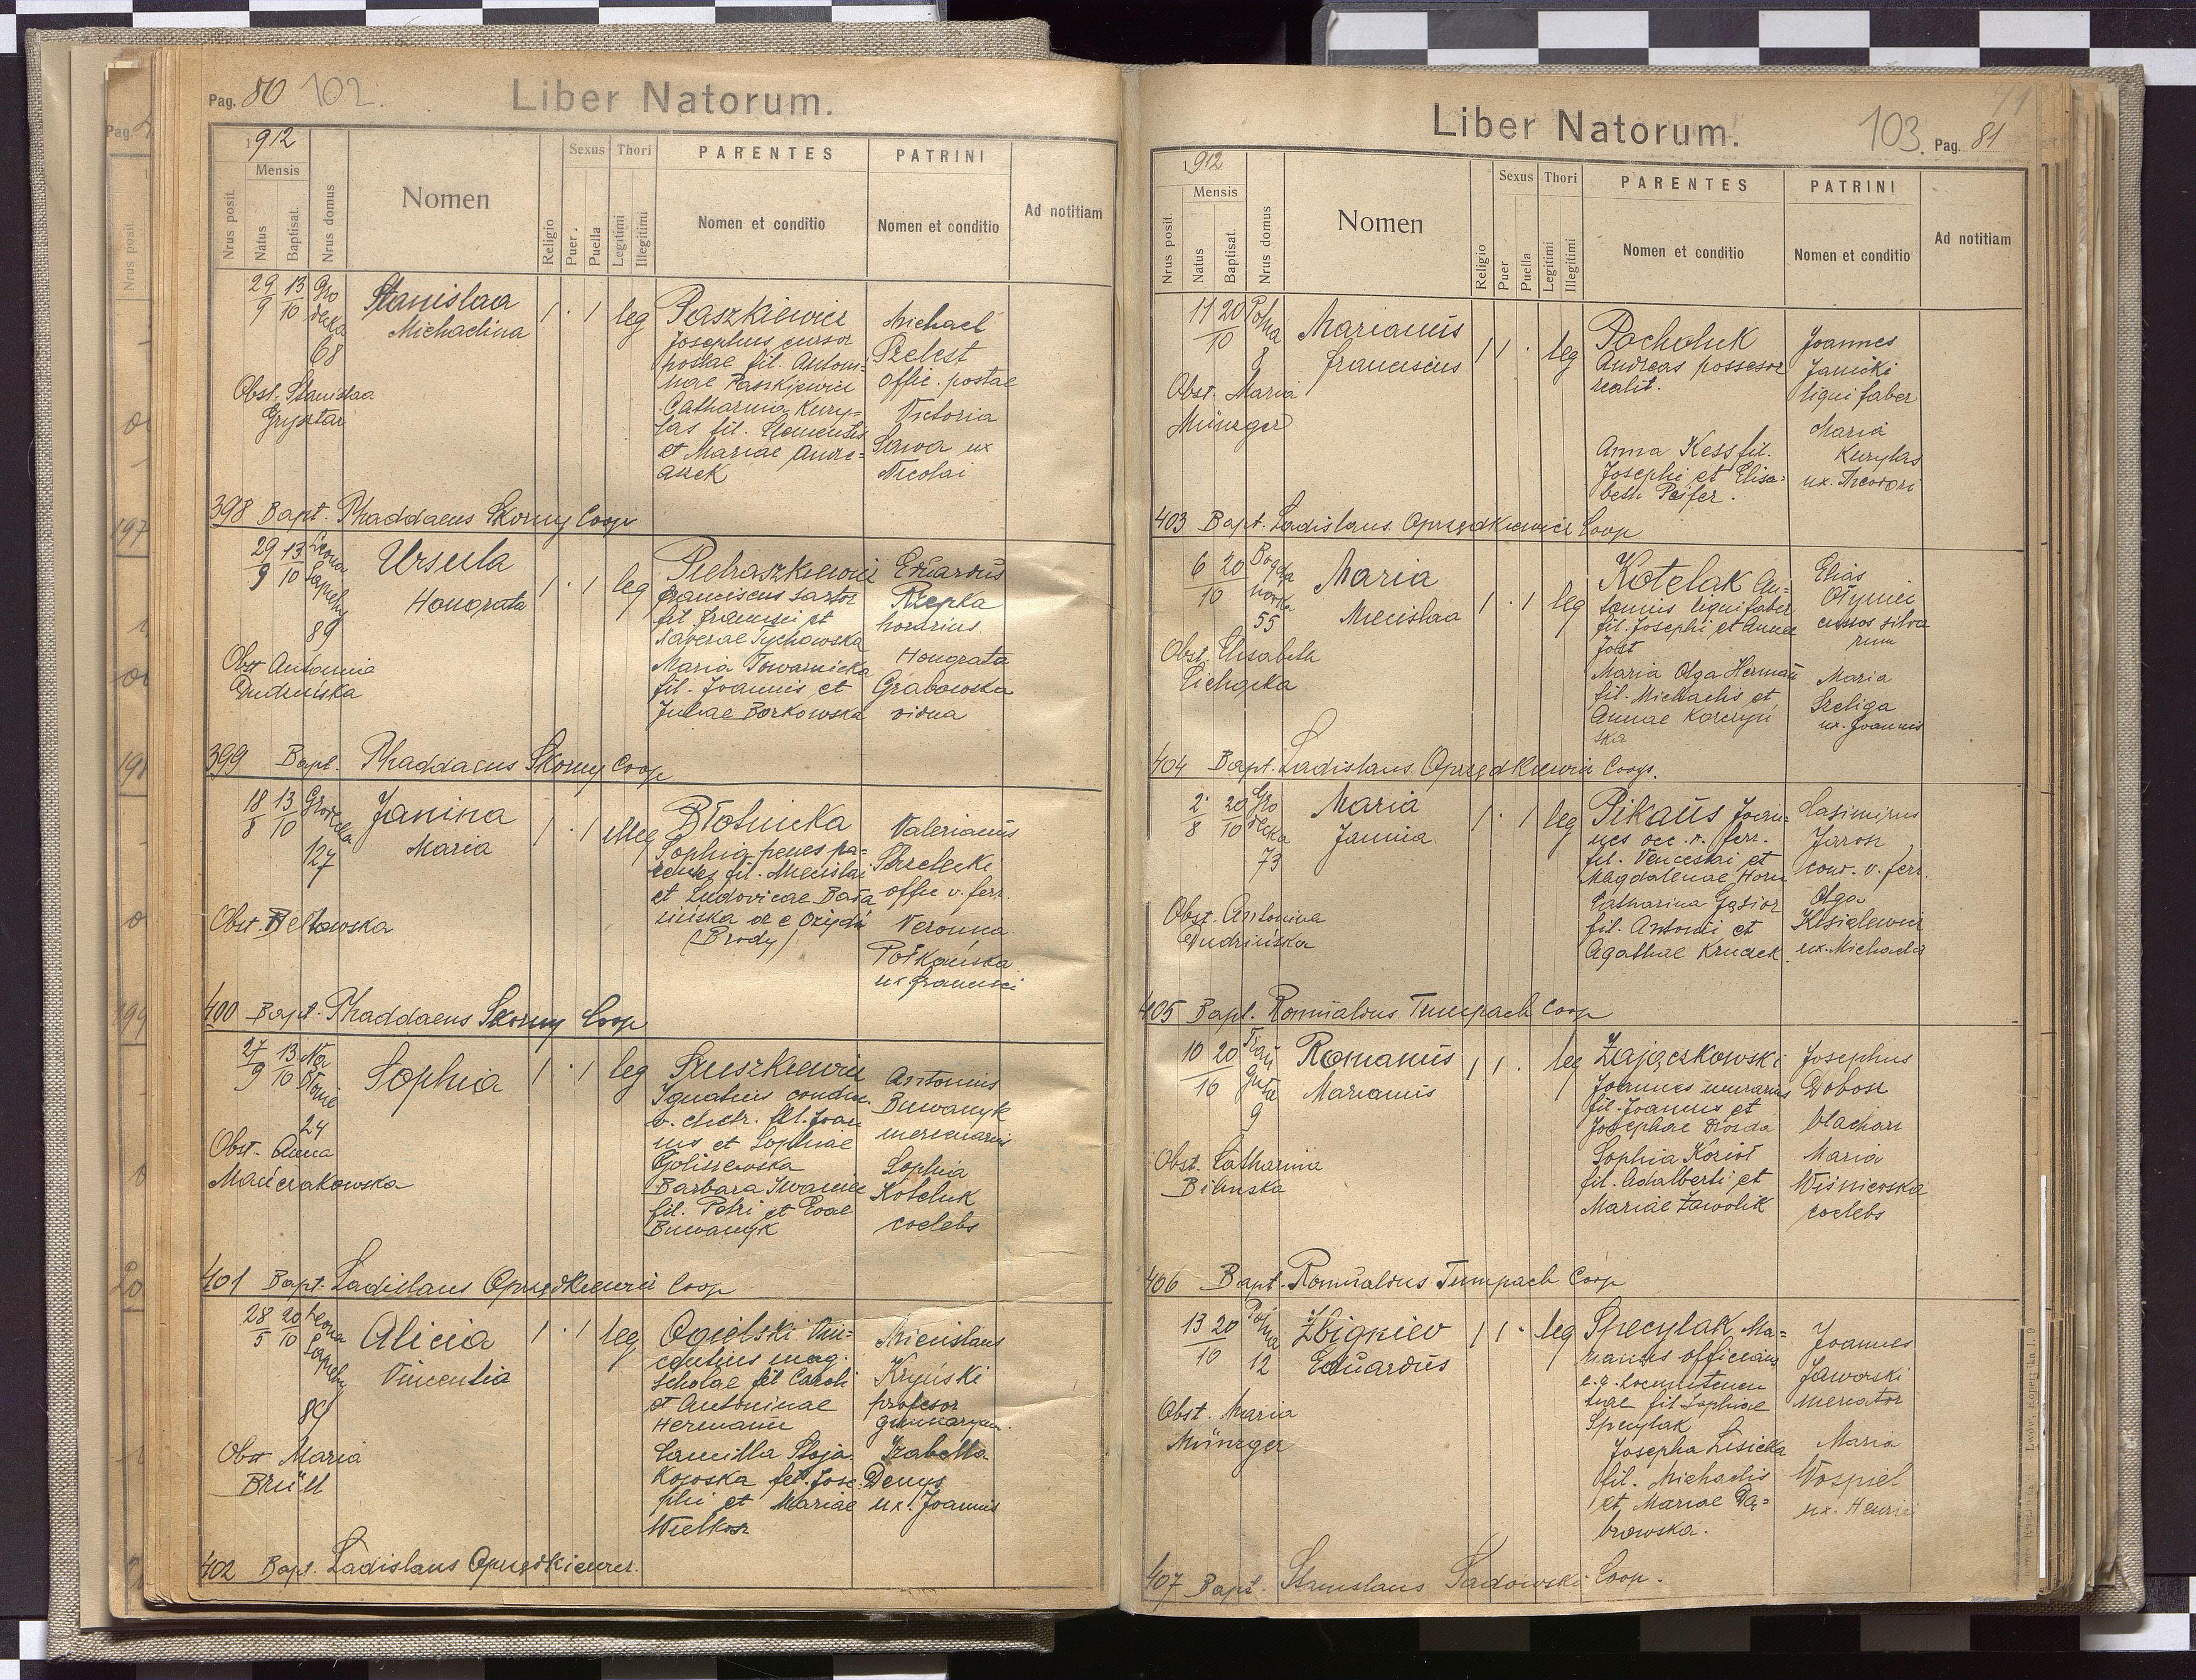 Pag. 80 102.
Liber Natorum.
1912
Mensis
Nrus posit.
Natus
Baptisat.
Nrus domus
Nomen
Religio
Sexus
Puer.
Puella
Thori
Legitimi
Illegitimi
PARENTES
Nomen et conditio
PATRINI
Nomen et conditio
Ad notitiam
29 13 Gro
9 10 decka
68
Stanislaa
Michaelina
1 · 1 leg
Paszkiewicz
Josephus cursor
postae fil. Anton-
inae Paszkiewicz
Catharina Kury-
las fil. Clementis
et Mariae Andre-
aszek
Michael
Przelest
offic. postae
Victoria
Sawa ux
Nicolai
Obst. Stanislaa
Gryglar
398 Bapt. Thaddaeus Skorny Coop
29 13 Leona
9 10 Sapiehy
89
Ursula
Honorata
1 · 1 leg
Pietraszkiewicz
Franciscus sartor
fil. Francisci et
Xaverae Tychowska
Maria Towarnicka
fil. Joannis et
Juliae Borkowska
Eduardus
Rzepka
horarius
Honorata
Grabowska
vidua
Obst Antonina
Dudzińska
399 Bapt. Thaddaeus Skorny Coop
18 13 Grodecka
8 10
127
Janina
Maria
1 · 1 illeg
Błotnicka
Sophia penes pa-
rentes fil. Miecislai
et Ludovicae Bada
ińska or e Ożydów
(Brody)
Valerianus
Strzelecki
offic v. ferr.
Veronna
Potkańska
ux Francisci
Obst. Beltowska
400 Bapt. Thaddaeus Skorny Coop
27 13 Na
9 10 Błonie
24
Sophia
1 · 1 leg
Szuszkiewicz
Ignatius condu.
v. electr. fil. Joan
nis et Sophiae
Goliszewska
Barbara Iwaniec
fil. Petri et Evae
Buwanyk
Antonius
Buwanyk
mercenarius
Sophia
Kościuk
coelebs
Obst. Anna
Mańczakowska
401 Bapt. Ladislaus Oprzędkiewicz Coop
28 20 Leona
5 10 Sapiehy
89
Alicia
Vincentia
1 · 1 leg
Ogielski Vin-
centius mag.
scholae fil Caroli
et Antoninae
Hermann
Camilla Stoja
kowska fil. Jose-
phi et Mariae
Wielkosz
Miecislaus
Kryński
profesor
gimnazyum.
Izabella
Denys
ux. Joannis
Obst Maria
Brüll
402 Bapt. Ladislaus Oprzędkiewicz.
Liber Natorum.
103. Pag. 81
1912
Mensis
Nrus posit.
Natus
Baptisat.
Nrus domus
Nomen
Religio
Sexus
Puer
Puella
Thori
Legitimi
Illegitimi
PARENTES
Nomen et conditio
PATRINI
Nomen et conditio
Ad notitiam
11 20 Polna
10 8
Marianus
Franciscus
1 1 · leg
Pacholuk
Andreas possesor
realit.
Anna Kess fil.
Josephi et Elisa-
beth Peifer.
Joannes
Janicki
ligni faber
Maria
Kurylas
ux. Theodori
Obst. Maria
Münzger
403 Bapt. Ladislaus Oprzędkiewicz Coop
6 20 Bogda
10 nówka
55
Maria
Miecislaa
1 · 1 leg
Kotelak An-
tonius ligni faber
fil. Josephi et Annae
Jost
Maria Olga Herman
fil. Michaelis et
Annae Korczyń
ska
Elias
custos silva
rum
Maria
Szeliga
ux. Joannis
Obst. Elisabeth
Cichocka
404 Bapt. Ladislaus Oprzędkiewicz Coop.
2 20 Gro
8 10 decka
73
Maria
Janina
1 · 1 leg
Pikaus Joan-
nes occ. v. ferr.
fil. Venceslai et
Magdalenae Horn
Catharina Gąsior
fil. Antonii et
Agathae Kruczek
Casimirus
Jarosz
con. v. ferr.
Olga
Kisielewicz
ux. Michaelis
Obst. Antonina
Dudzińska
405 Bapt. Romualdus Tumpach Coop
10 20 Trau
10 gutta
9
Romanus
Marianus
1 1 · leg
Zajączkowski
Joannes murarius
fil. Joannis et
Josephae Drozda
Sophia Kozioł
fil. Adalberti et
Mariae Zawolik
Josephus
Dobosz
Maria
Wiśniewska
coelebs
Obst. Catharina
Bilinska
406 Bapt. Romualdus Tumpach Coop
13 20 Polna
10 12
Zbigniew
Eduardus
1 1 · leg
Specylak Ma-
rianus officians
c. r. locumtenen
tiae fil Sophiae
Specylak
Josepha Lisicka
fil. Michaelis
et Mariae Dą-
browska.
Joannes
Jaworski
mercator
Maria
Wospiel
ux. Henrici
Obst. Maria
Münzger
407 Bapt. Stanislaus Sadowski Coop.